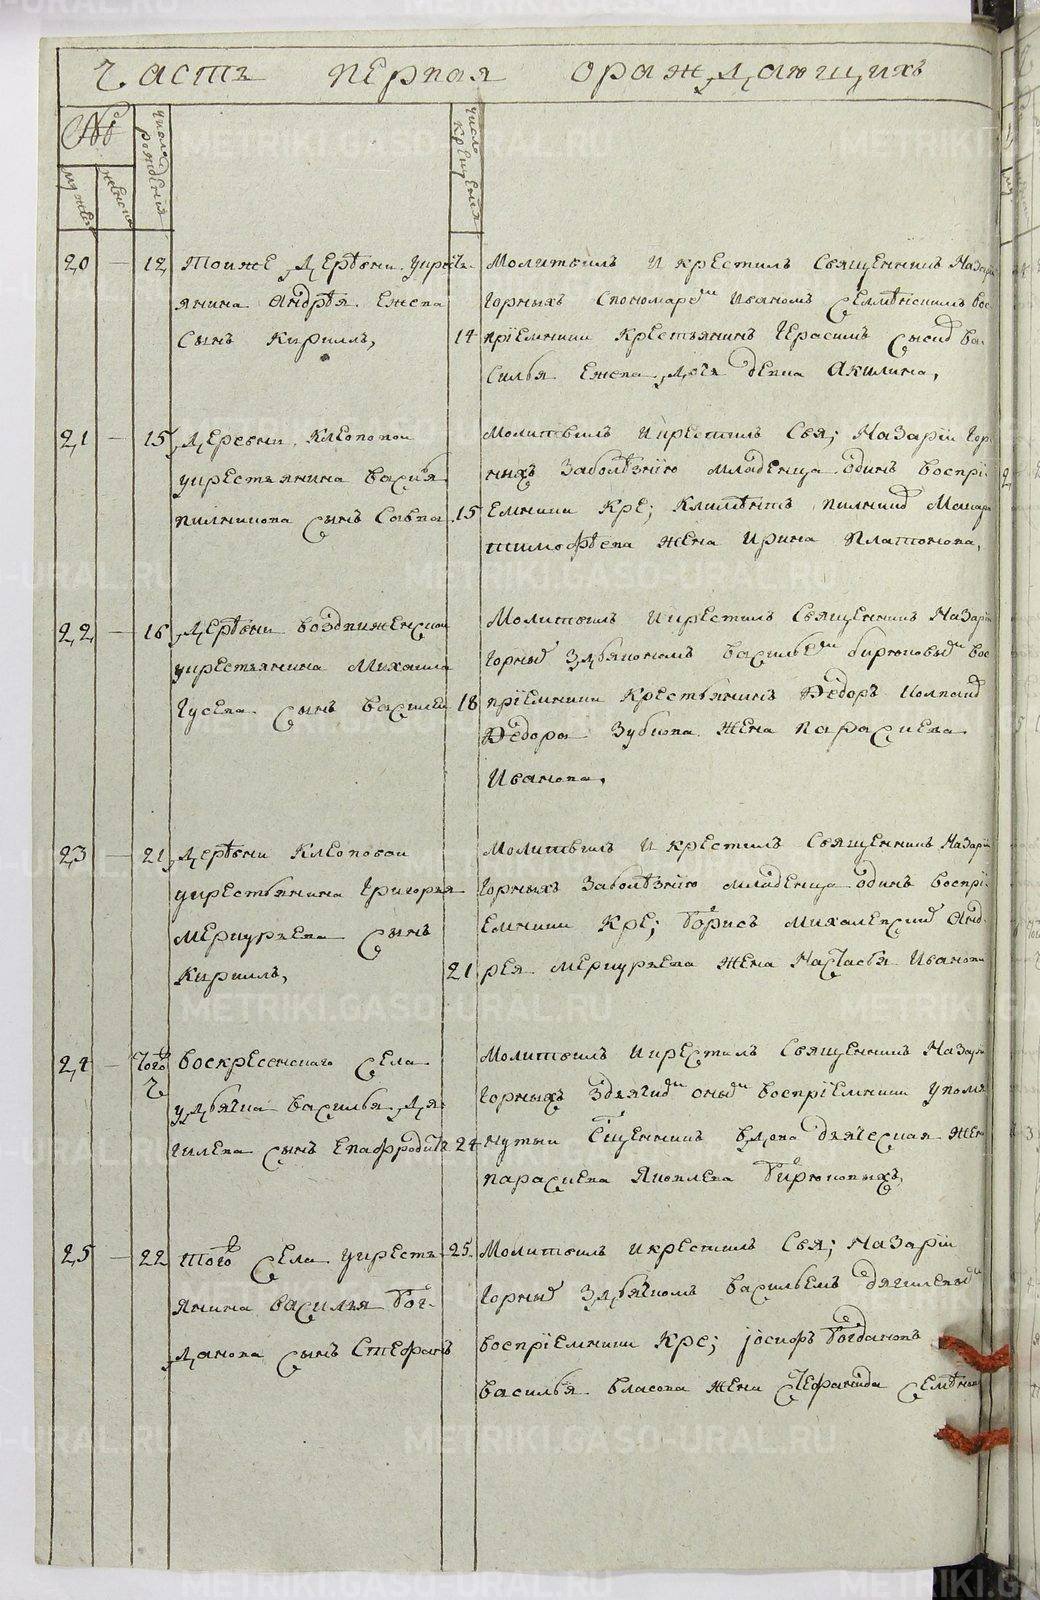 Часть первая ораждающихъ
№
мужеск
женска
число рождения
число крещения
20 — 12 тоиже дерѣвни укрѣть
янина Андрѣя Ежева
сынъ Кириллъ,
14
Молитвилъ и крестилъ Священникъ Назарi
Горныхъ Спономаремъ Иваномъ Семѣнскимъ вос
прiемники Крестьянинъ Герасимъ Ва
силья Ежева дочь девка Акилина,
21 — 15 деревни Клевокиной
укрестьянина Васи́лья
Пилникова сынъ Савва
15
Молитвилъ икрестилъ Свя; Назарiи Гор
ныхъ Заболѣзнiю младенца одинъ воспрi
емники Кре; Климѣнтъ Пилник Макара
тимофѣева жена Ирина Платонова,
22 — 16 дерѣвни воздвиженской
укрестьянина Михаила
Гусева сынъ Василеи
18
Молитвилъ икрестилъ Священникъ Назарiи
Горныхъ Здьякономъ Васильемъ Бирюковымъ вос
прiемники Крестьянинъ Федоръ
Федора Зубкова жена параскева
Иванова,
23 — 21 дерѣвни Клевокиной
укрестьянина Григорья
Меркурьева сынъ
Кириллъ,
21
Молитвилъ и крестилъ Священникъ Назарiи
Горныхъ Заболѣзнiю младенца одинъ воспрi
емники Кре; Борисъ Михалевских Анд
рея Меркурьева жена Настасья Иванова
24 — того ч
воскресенскаго села
удьячка Василья Дя
гилева сынъ Епафродитъ
24
Молитвилъ икрестилъ Священникъ Назарiи
Горныхъ Здьячкомъ онымъ воспрiемники упомя
нутыи Сщенникъ вдова дьяческая жена
параскева Яковлева Бирюковыхъ,
25 — 22 того села укресть
янина Василья Бог
данова сынъ Стефанъ
25.
Молитвилъ икрестилъ Свя; Назарiи
Горных Здьячкомъ Васильемъ Дягилевымъ
воспрiемники Кре; iосифъ Богдановъ
Василья Власова жена Стефанида Семѣнова
METRIKI.GASO-URAL.RU